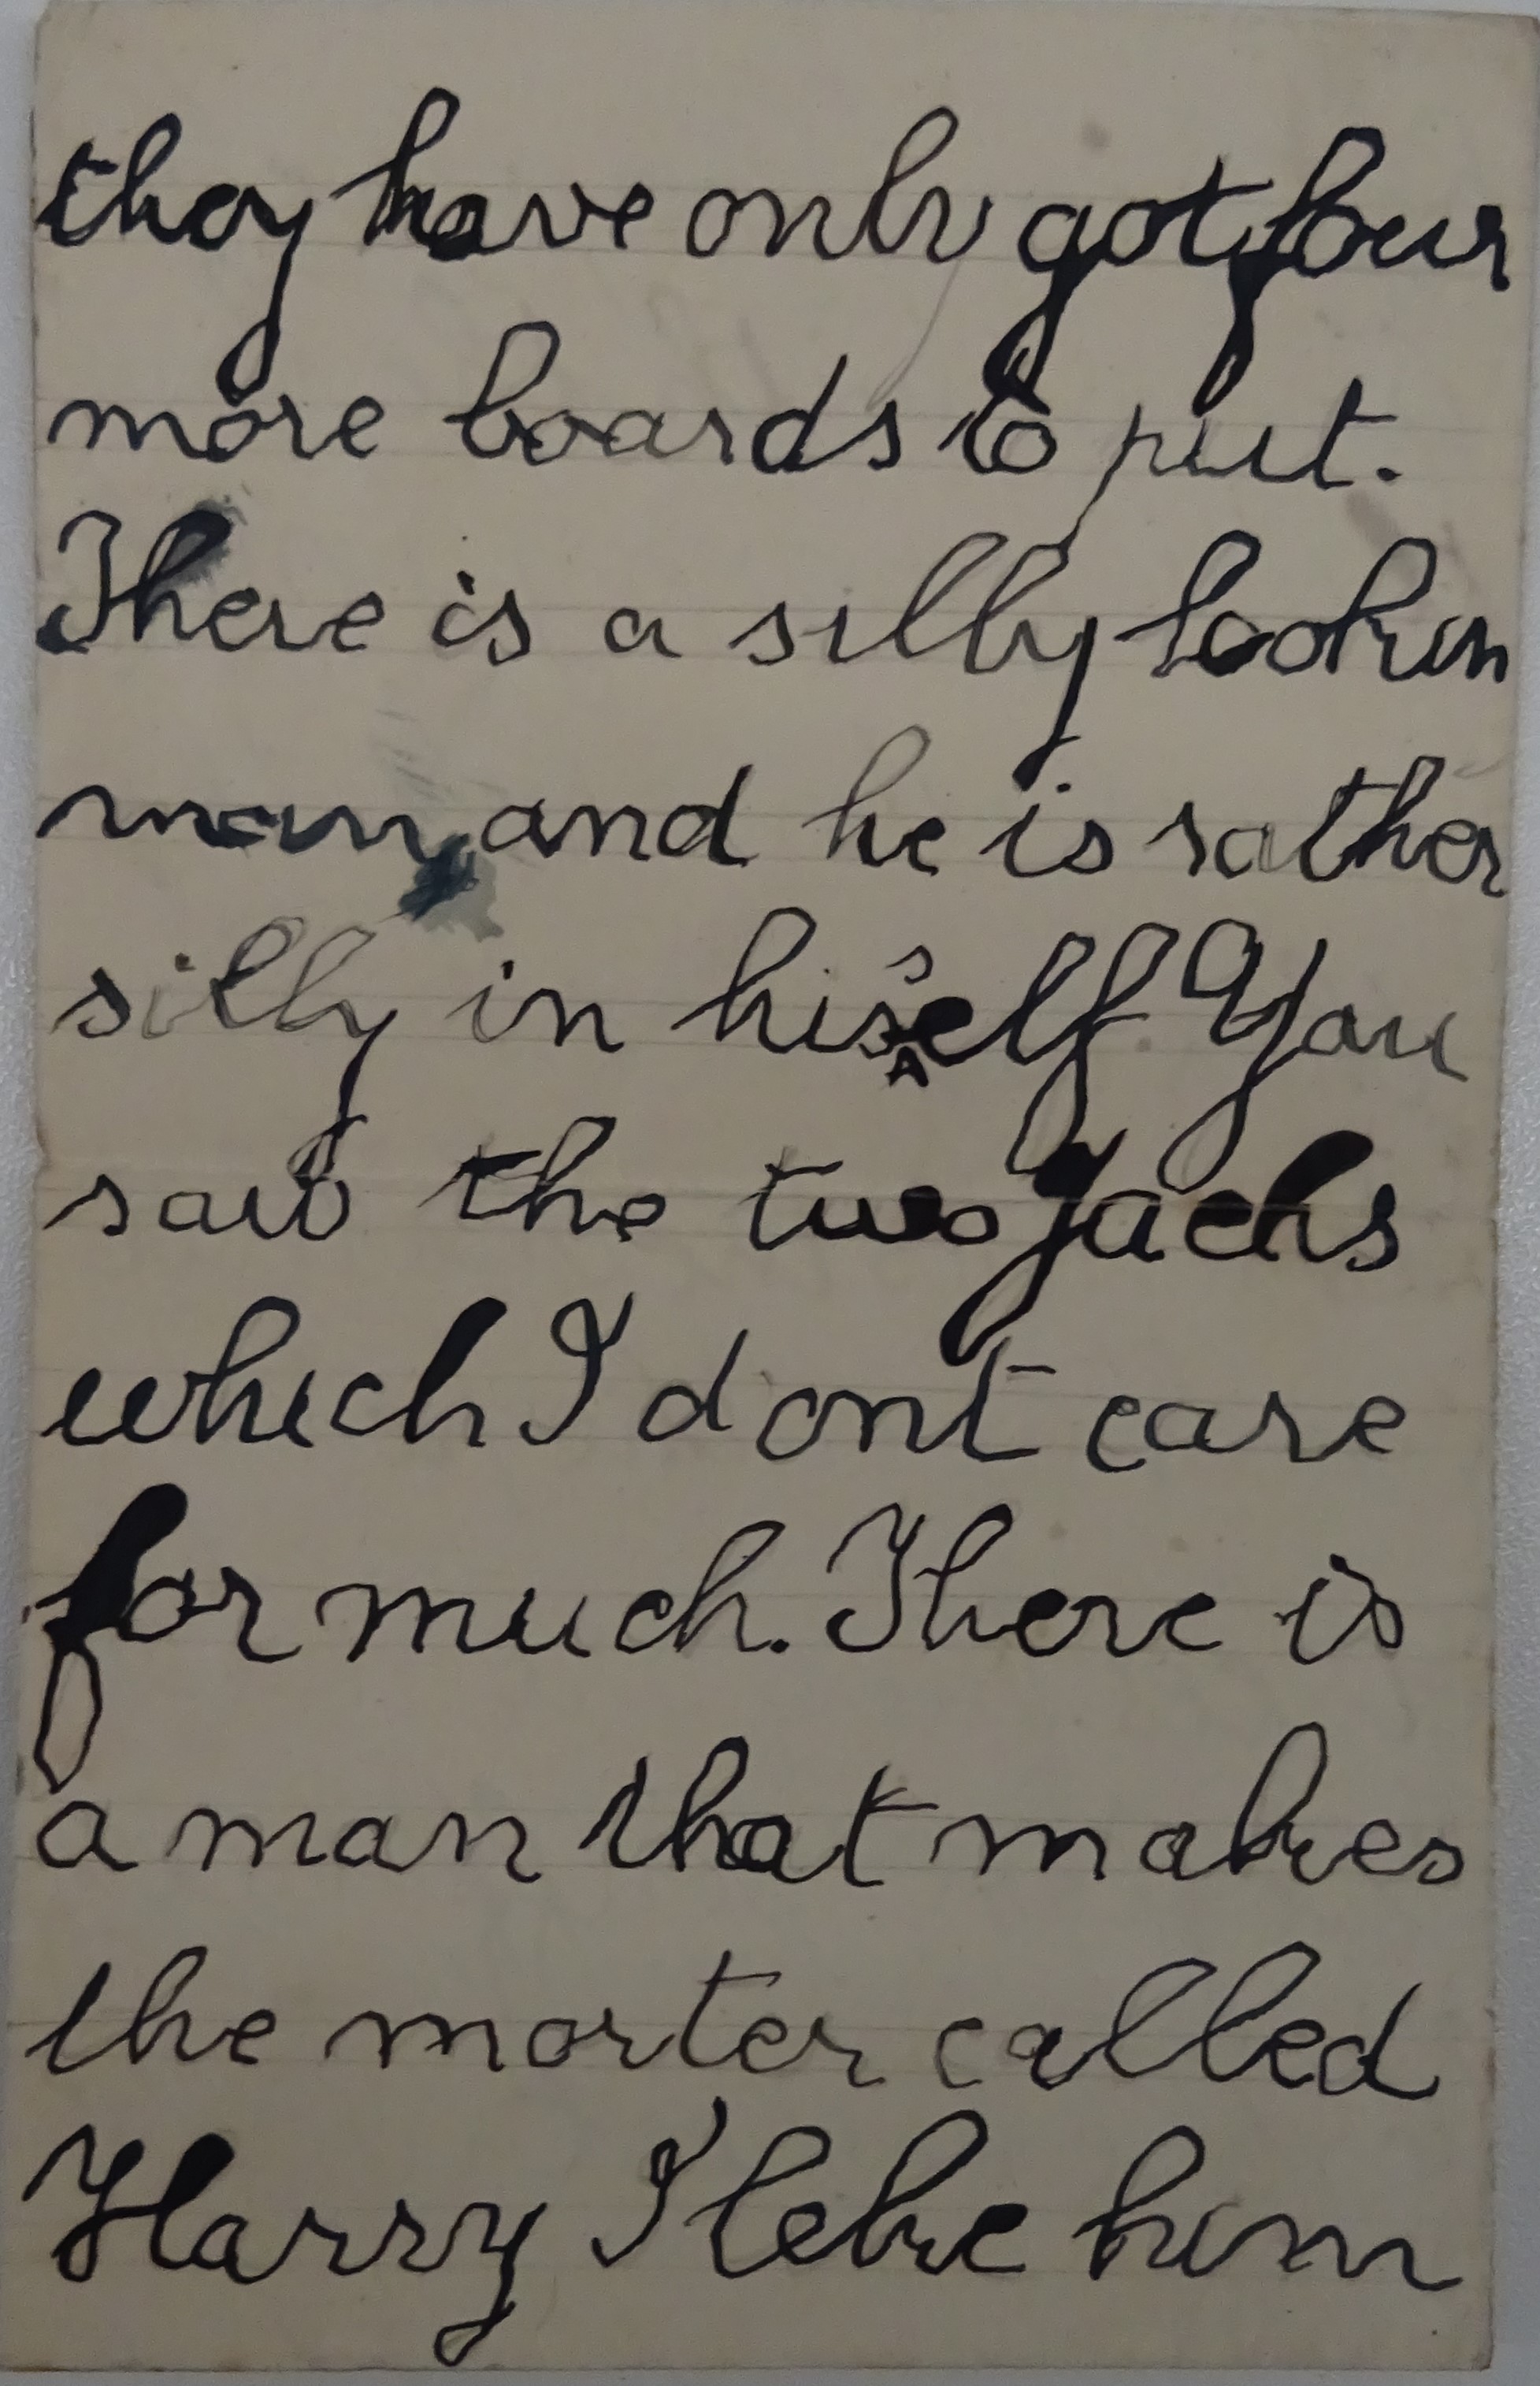 they have only got four
more boards to put.
There is a silly lookin
man and he is rather
silly in hisself You
saw the two jacks
which I dont care
for much. There is
a man that makes
the morter called
Harry I like him